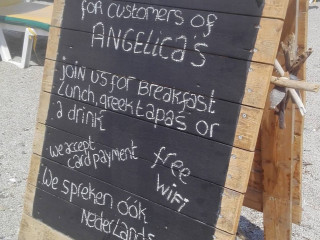 for customers of
ANGELICA'S
join us for Breakfast
lunch, greek tapas or
a drink
we accept
card payment
free
WiFi
We spreken óók
Nederlands